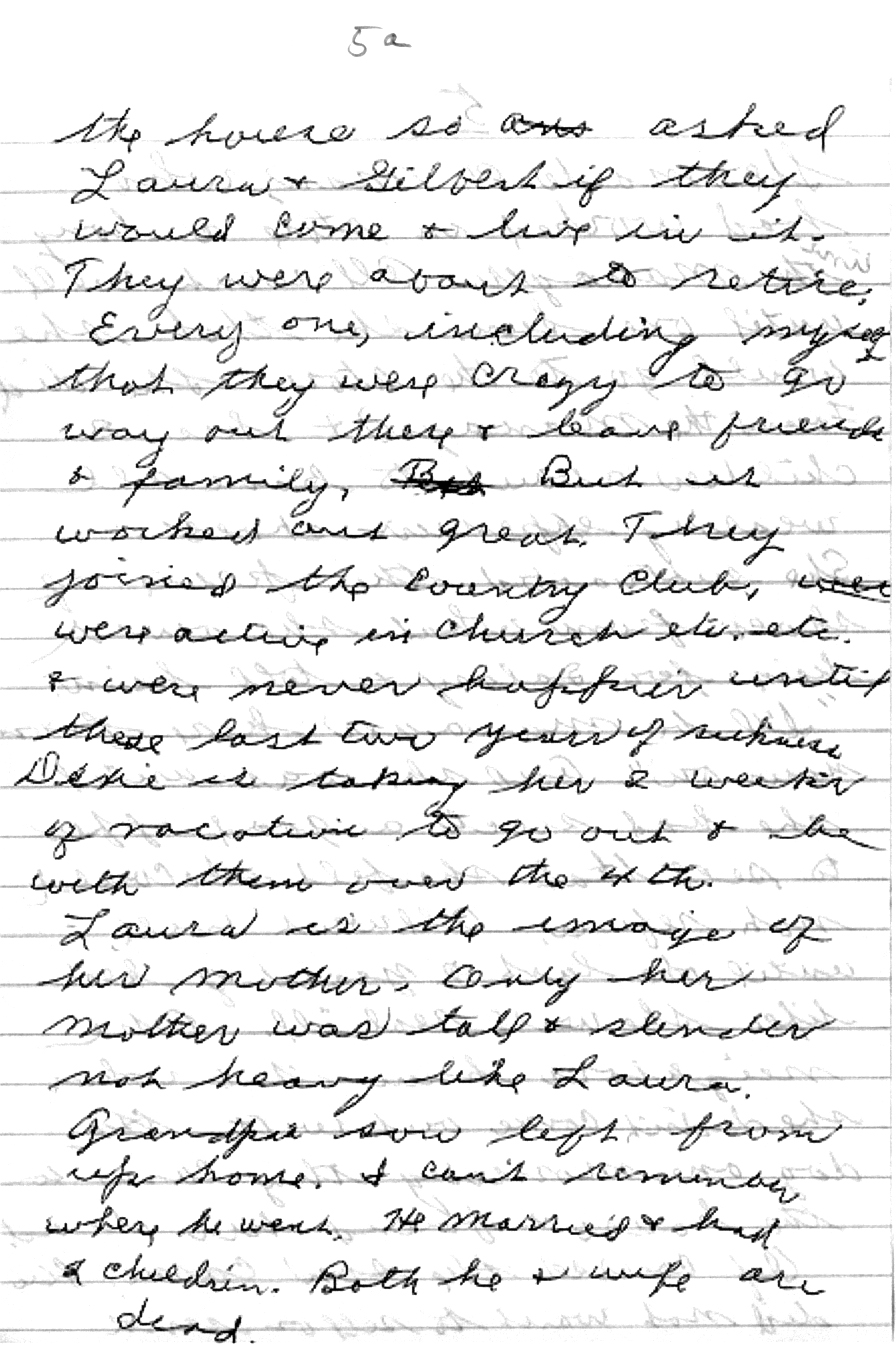 5a
the house so asked
Laura & Gilbert if they
would come & live in it.
They were about to retire.
Every one, including myself
that they were crazy to go
way out there & leave friends
& family, But it
worked out great. They
joined the Country Club,
were active in Church etc. etc.
& were never happier until
these last two years of sickness
Dixie is taking her 2 weeks
of vacation to go out & be
with them over the 4th.
Laura is the image of
her mother. Only her
mother was tall & slender
not heavy like Laura.
Grandpa son left from
up home. I can't remember
where he went. He married & had
2 children. Both he & wife are
dead.